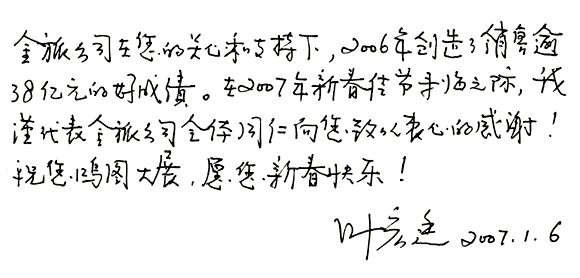 金旅公司在您的关心和支持下，2006年创造了销售逾
38亿元的好成绩。在2007年新春佳节来临之际，我
谨代表金旅公司全体同仁向您致以衷心的感谢！
祝您鸿图大展，愿您新春快乐！
叶宏连 2007.1.6